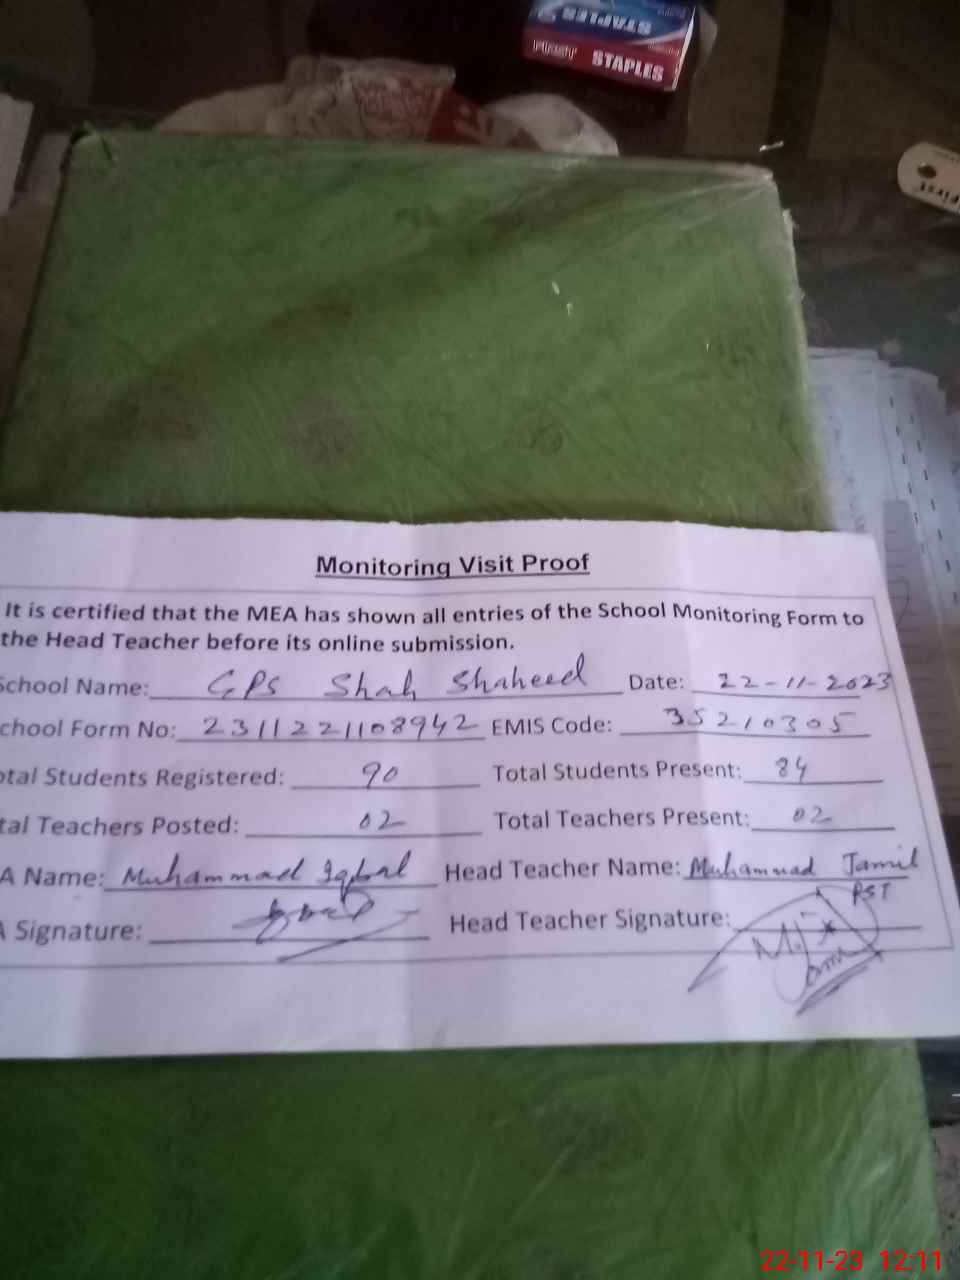 STAPLES
FIRST STAPLES
First
Monitoring Visit Proof
It is certified that the MEA has shown all entries of the School Monitoring Form to
the Head Teacher before its online submission.
School Name: GPS Shah Shaheed Date: 22-11-2023
chool Form No: 2311221108942 EMIS Code: 35210305
otal Students Registered: 90 Total Students Present: 84
tal Teachers Posted: 02 Total Teachers Present: 02
A Name: Muhammad Iqbal Head Teacher Name: Muhammad Jamil
PST
A Signature: Head Teacher Signature:
M. Jamil
22-11-23 12:11